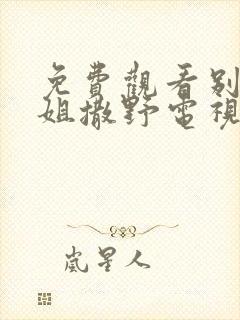 免費觀看別
姐撒野電視
嵐星人